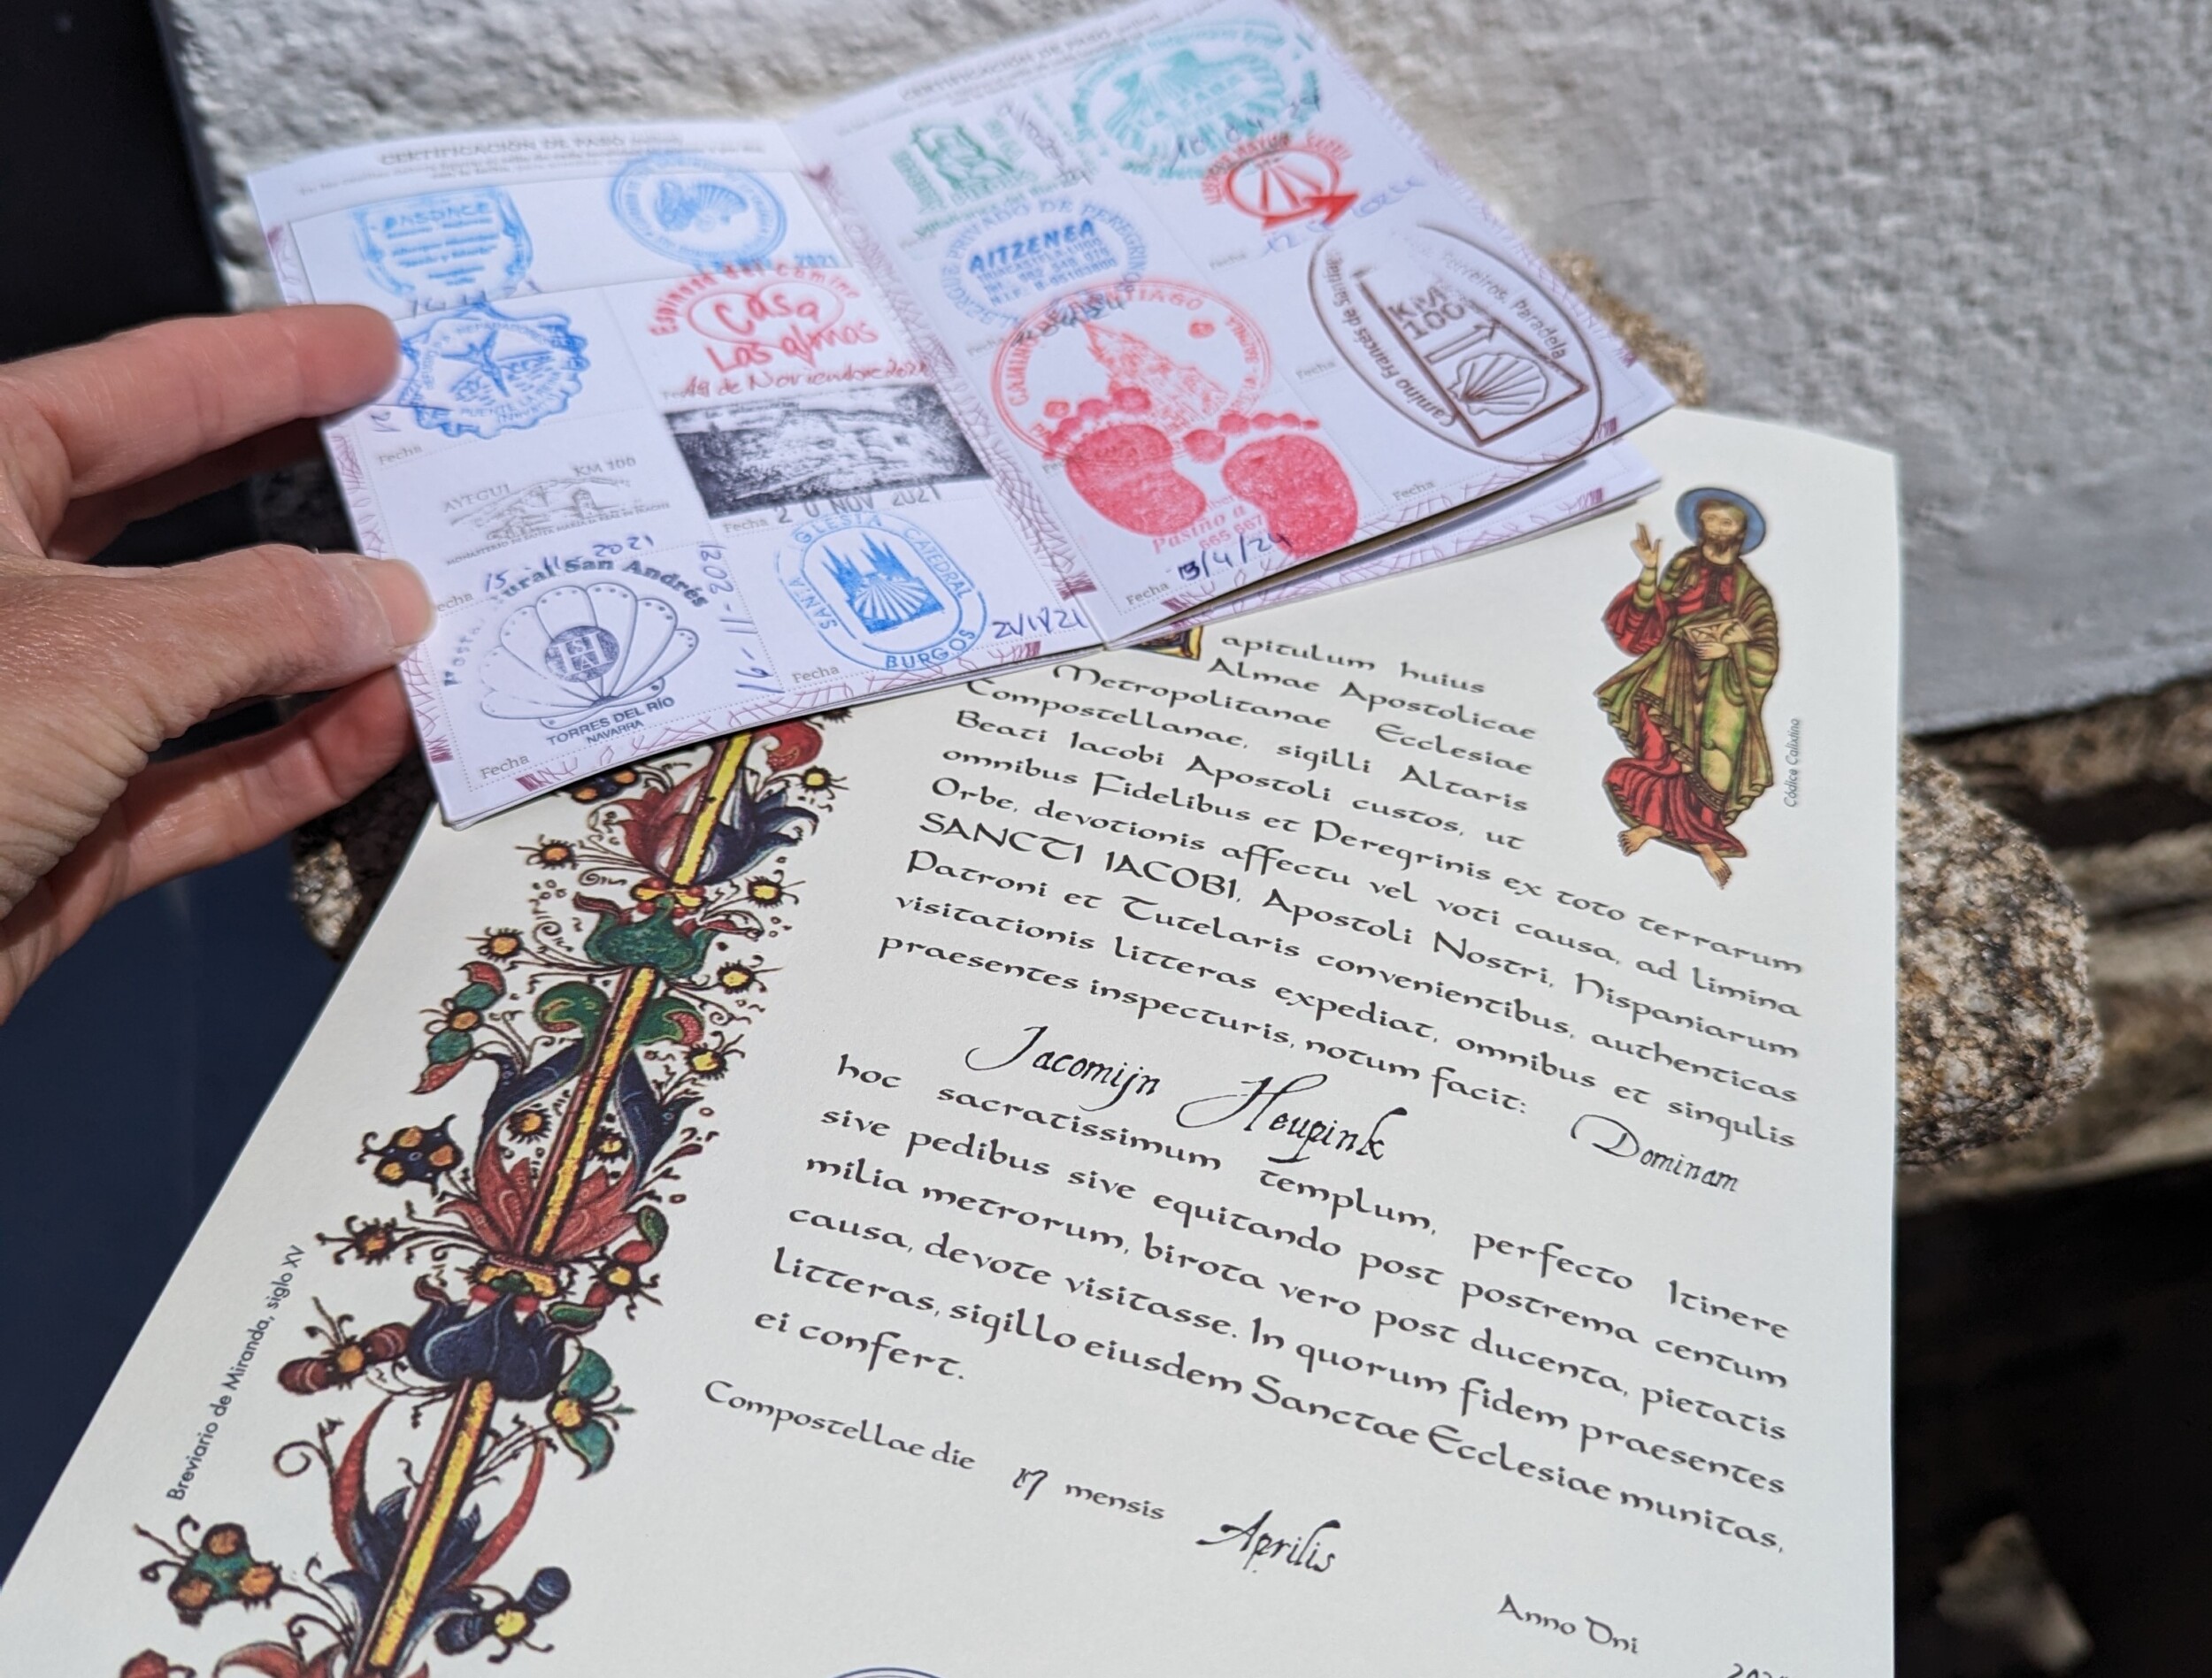 CERTIFICACIÓN DE PASO
2021
Espinosa del Camino
Casa
Las almas
19 de Noviembre 2021
Fecha
AYEGUI
KM 100
MONASTERIO DE SANTA MARIA LA REAL DE IRACHE
15-11-2021
20 NOV 2021
Fecha
Fecha
Rural San Andrés
TORRES DEL RÍO
NAVARRA
16-11-2021
Fecha
SANTA IGLESIA CATEDRAL
BURGOS
21/11/21
Fecha
CERTIFICACIÓN DE PASO
ALBERGUE PRIVADO DE PEREGRINOS
AITZENEA
Fecha
CAMINO SANTIAGO
Pasiño a
665 667
13/4/24
Fecha
Camino Francés de Santiago
Ferreiros, Paradela
KM
100
Fecha
Fecha
apitulum huius
Almae Apostolicae
Metropolitanae Ecclesiae
Compostellanae, sigilli Altaris
Beati Iacobi Apostoli custos, ut
omnibus Fidelibus et Peregrinis ex toto terrarum
Orbe, devotionis affectu vel voti causa, ad limina
SANCTI IACOBI, Apostoli Nostri, Hispaniarum
Patroni et Tutelaris convenientibus, authenticas
visitationis litteras expediat, omnibus et singulis
praesentes inspecturis, notum facit: Dominam
Jacomijn Heupink
hoc sacratissimum templum, perfecto Itinere
sive pedibus sive equitando post postrema centum
milia metrorum, birota vero post ducenta, pietatis
causa, devote visitasse. In quorum fidem praesentes
litteras, sigillo eiusdem Sanctae Ecclesiae munitas,
ei confert.
Compostellae die 17 mensis Aprilis
Anno Dni
Códice Calixtino
Breviario de Miranda, siglo XV